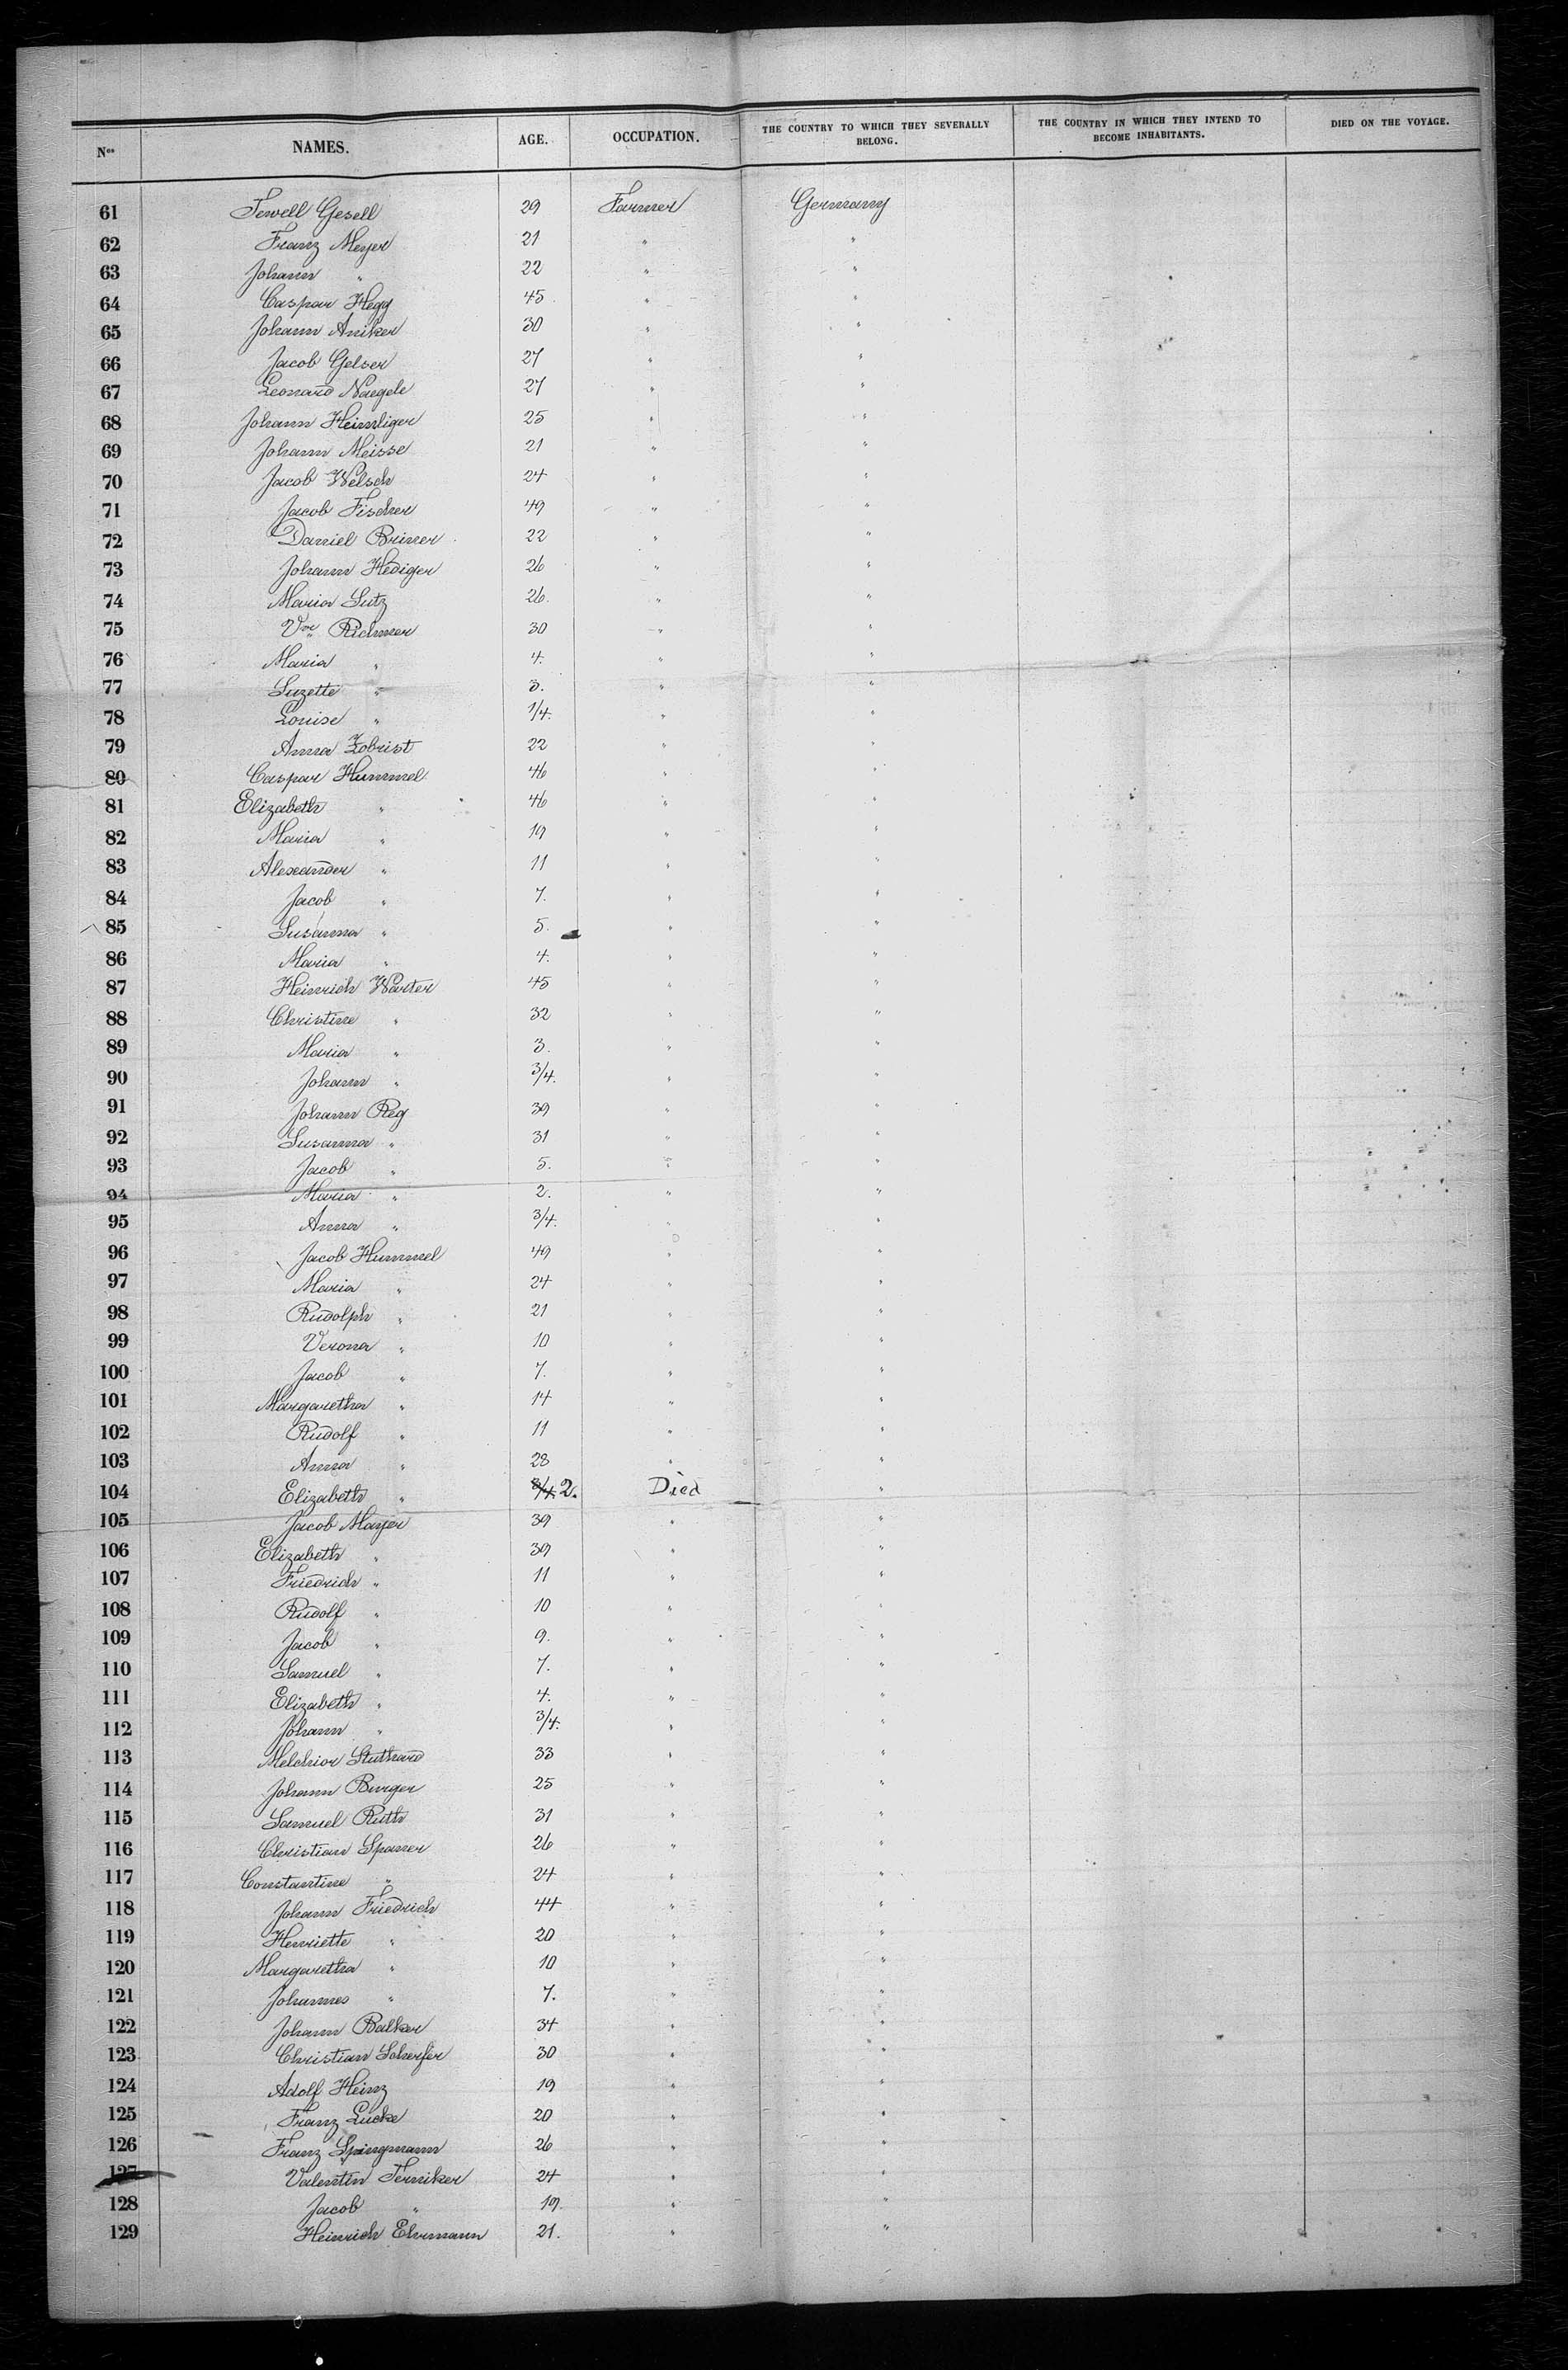 Nos NAMES. AGE. OCCUPATION. THE COUNTRY TO WHICH THEY SEVERALLY BELONG. THE COUNTRY IN WHICH THEY INTEND TO BECOME INHABITANTS. DIED ON THE VOYAGE.
61 Gesell 29 Farmer Germany
62 Franz Meyer 21 " "
63 Johann " 22 " "
64 Caspar Hegg 45 " "
65 Johann Aniker 30 " "
66 Jacob Gelser 27 " "
67 Leonard Naegele 27 " "
68 Johann Heimliger 25 " "
69 Johann Meisse 21 " "
70 Jacob Welsch 24 " "
71 Jacob Fischer 49 " "
72 Daniel Briner 22 " "
73 Johann Hediger 26 " "
74 Maria Lutz 26. " "
75 Vve Richner 30 " "
76 Maria " 4. " "
77 Suzette " 3. " "
78 Louise " 1/4. " "
79 Anna Zobrist 22 " "
80 Caspar Hummel 46 " "
81 Elizabeth " 46 " "
82 Maria " 19 " "
83 Alexander " 11 " "
84 Jacob " 7. " "
85 Susanna " 5. " "
86 Maria " 4. " "
87 Heinrich Warter 45 " "
88 Christine " 32 " "
89 Maria " 3. " "
90 Johann " 3/4. " "
91 Johann Reg 39 " "
92 Susanna " 31 " "
93 Jacob " 5. " "
94 Maria " 2. " "
95 Anna " 3/4. " "
96 Jacob Hummel 49 " "
97 Maria " 24 " "
98 Rudolph " 21 " "
99 Verona " 10 " "
100 Jacob " 7. " "
101 Margaretha " 14 " "
102 Rudolf " 11 " "
103 Anna " 28 " "
104 Elizabeth " 3/4. 2. Died "
105 Jacob Mayer 39 " "
106 Elizabeth " 39 " "
107 Friedrich " 11 " "
108 Rudolf " 10 " "
109 Jacob " 9. " "
110 Samuel " 7. " "
111 Elizabeth " 4. " "
112 Johann " 3/4. " "
113 Melchior Stuthard 33 " "
114 Johann Burger 25 " "
115 Samuel Ruth 31 " "
116 Christian Spaner 26 " "
117 Constantine " 24 " "
118 Johann Friedrich 44 " "
119 Henriette " 20 " "
120 Margaretha " 10 " "
121 Johannes " 7. " "
122 Johann Balker 34 " "
123 Christian Scherfer 30 " "
124 Adolf Heinz 19 " "
125 Franz Lucke 20 " "
126 Franz Springmann 26 " "
127 Valentin Ferniker 24 " "
128 Jacob " 19. " "
129 Heinrich Ehrmann 21. " "